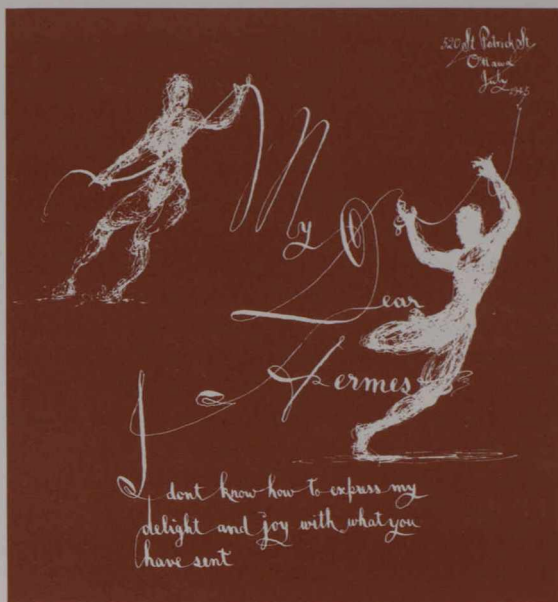 520 St Patrick St
Ottawa
July 1945
My
Dear
Hermes
I dont know how to express my
delight and joy with what you
have sent